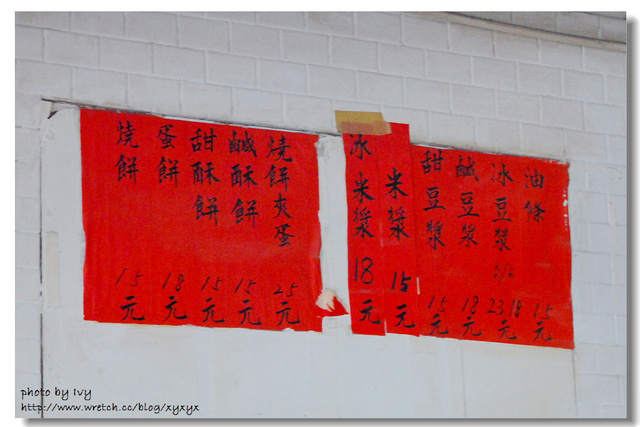 油條 15元
冰豆漿 23 18元
鹹豆漿 18元
甜豆漿 15元
米漿 15元
冰米漿 18元
燒餅夾蛋 25元
鹹酥餅 15元
甜酥餅 15元
蛋餅 18元
燒餅 15元
photo by Ivy
http://www.wretch.cc/blog/xyxyx